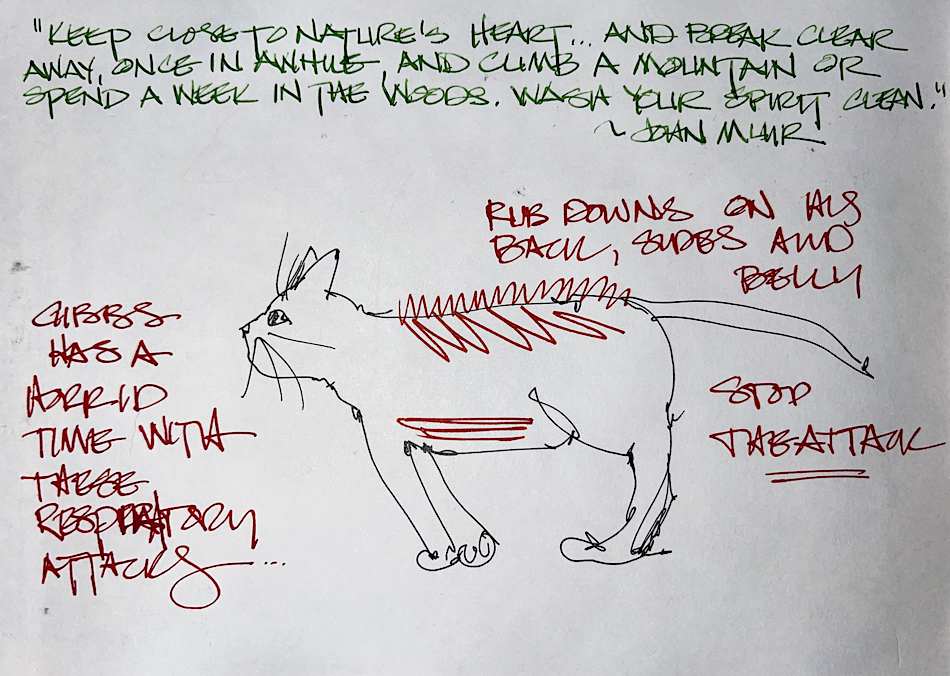 "KEEP CLOSE TO NATURE'S HEART... AND BREAK CLEAR
AWAY, ONCE IN AWHILE, AND CLIMB A MOUNTAIN OR
SPEND A WEEK IN THE WOODS. WASH YOUR SPIRIT CLEAN."
~ JOHN MUIR
RUB DOWNS ON HIS
BACK, SIDES AND
BELLY
GIBBS
HAS A
HORRID
TIME WITH
THESE
RESPIRATORY
ATTACKS...
STOP
THE ATTACK